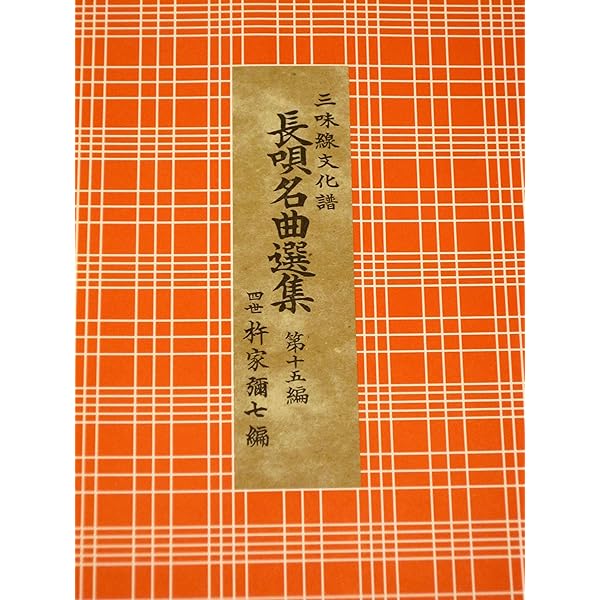 三味線文化譜
長唄名曲選集
第十五編
四世 杵家彌七編